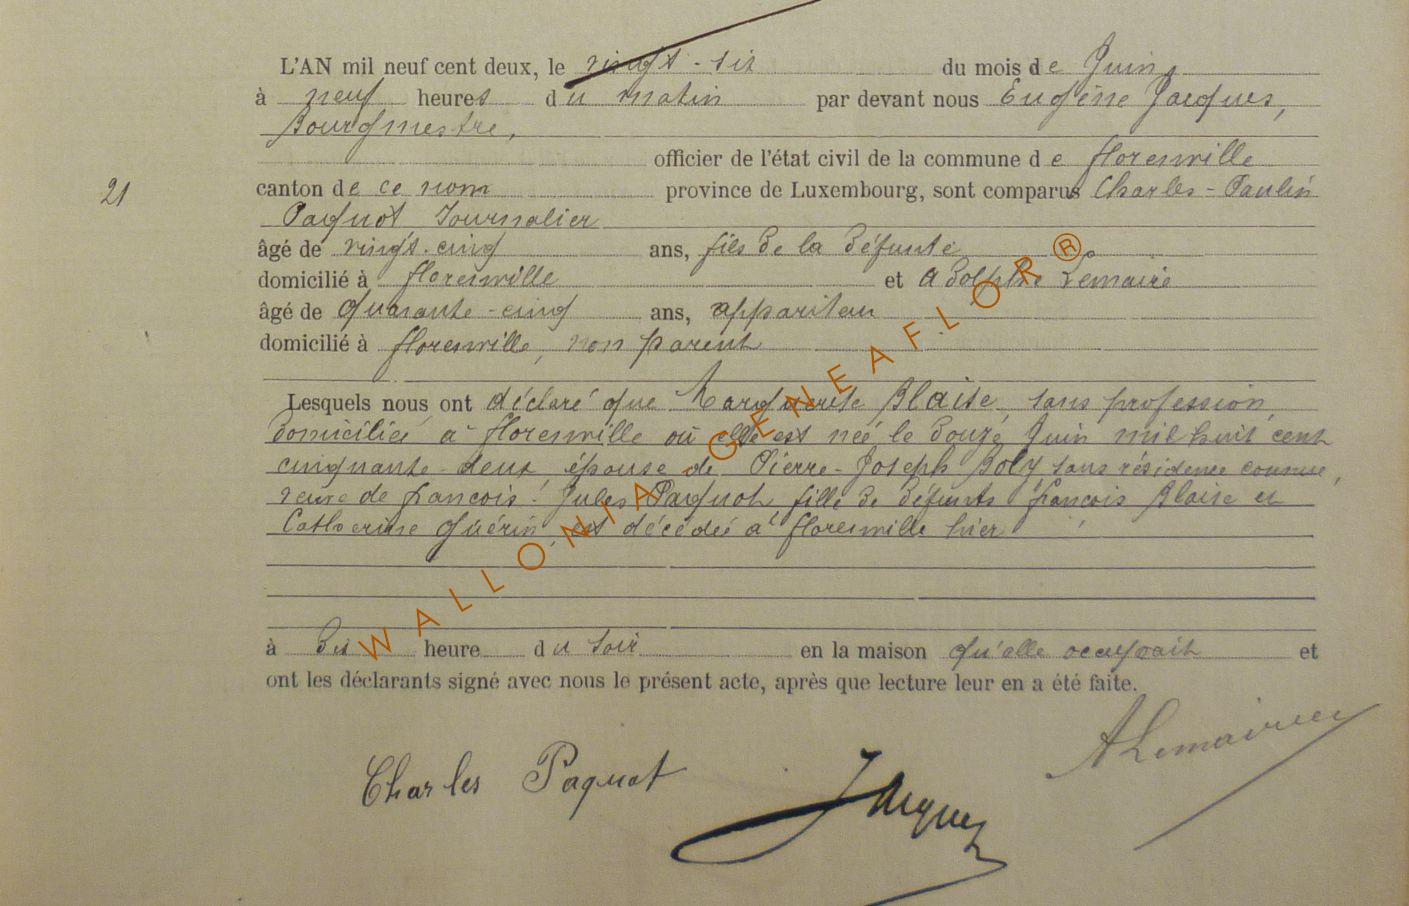 L'AN mil neuf cent deux, le vingt-six du mois de Juin,
à neuf heures du matin par devant nous Eugène Jacques,
Bourgmestre,
officier de l'état civil de la commune de florenville
21
canton de ce nom province de Luxembourg, sont comparus Charles-Paulin
Paquot Journalier
âgé de vingt-cinq ans, fils de la défunte
domicilié à florenville et Adolphe Lemaire
âgé de quarante-cinq ans, appariteur
domicilié à florenville, non parent
Lesquels nous ont déclaré que Marguerite Blaise, sans profession,
domiciliée à florenville où elle est née le douze Juin mil huit cent
cinquante-deux, épouse de Pierre-Joseph Boly sans résidence connue,
veuve de francois-Jules Paquot fille de défunts francois Blaise et
Catherine Guérin, est décédée à florenville hier
à dix heure du soir en la maison qu'elle occupait et
ont les déclarants signé avec nous le présent acte, après que lecture leur en a été faite.
Charles Paquot
Jacques
A Lemaire
WALLONIA-GENEAFLOR®